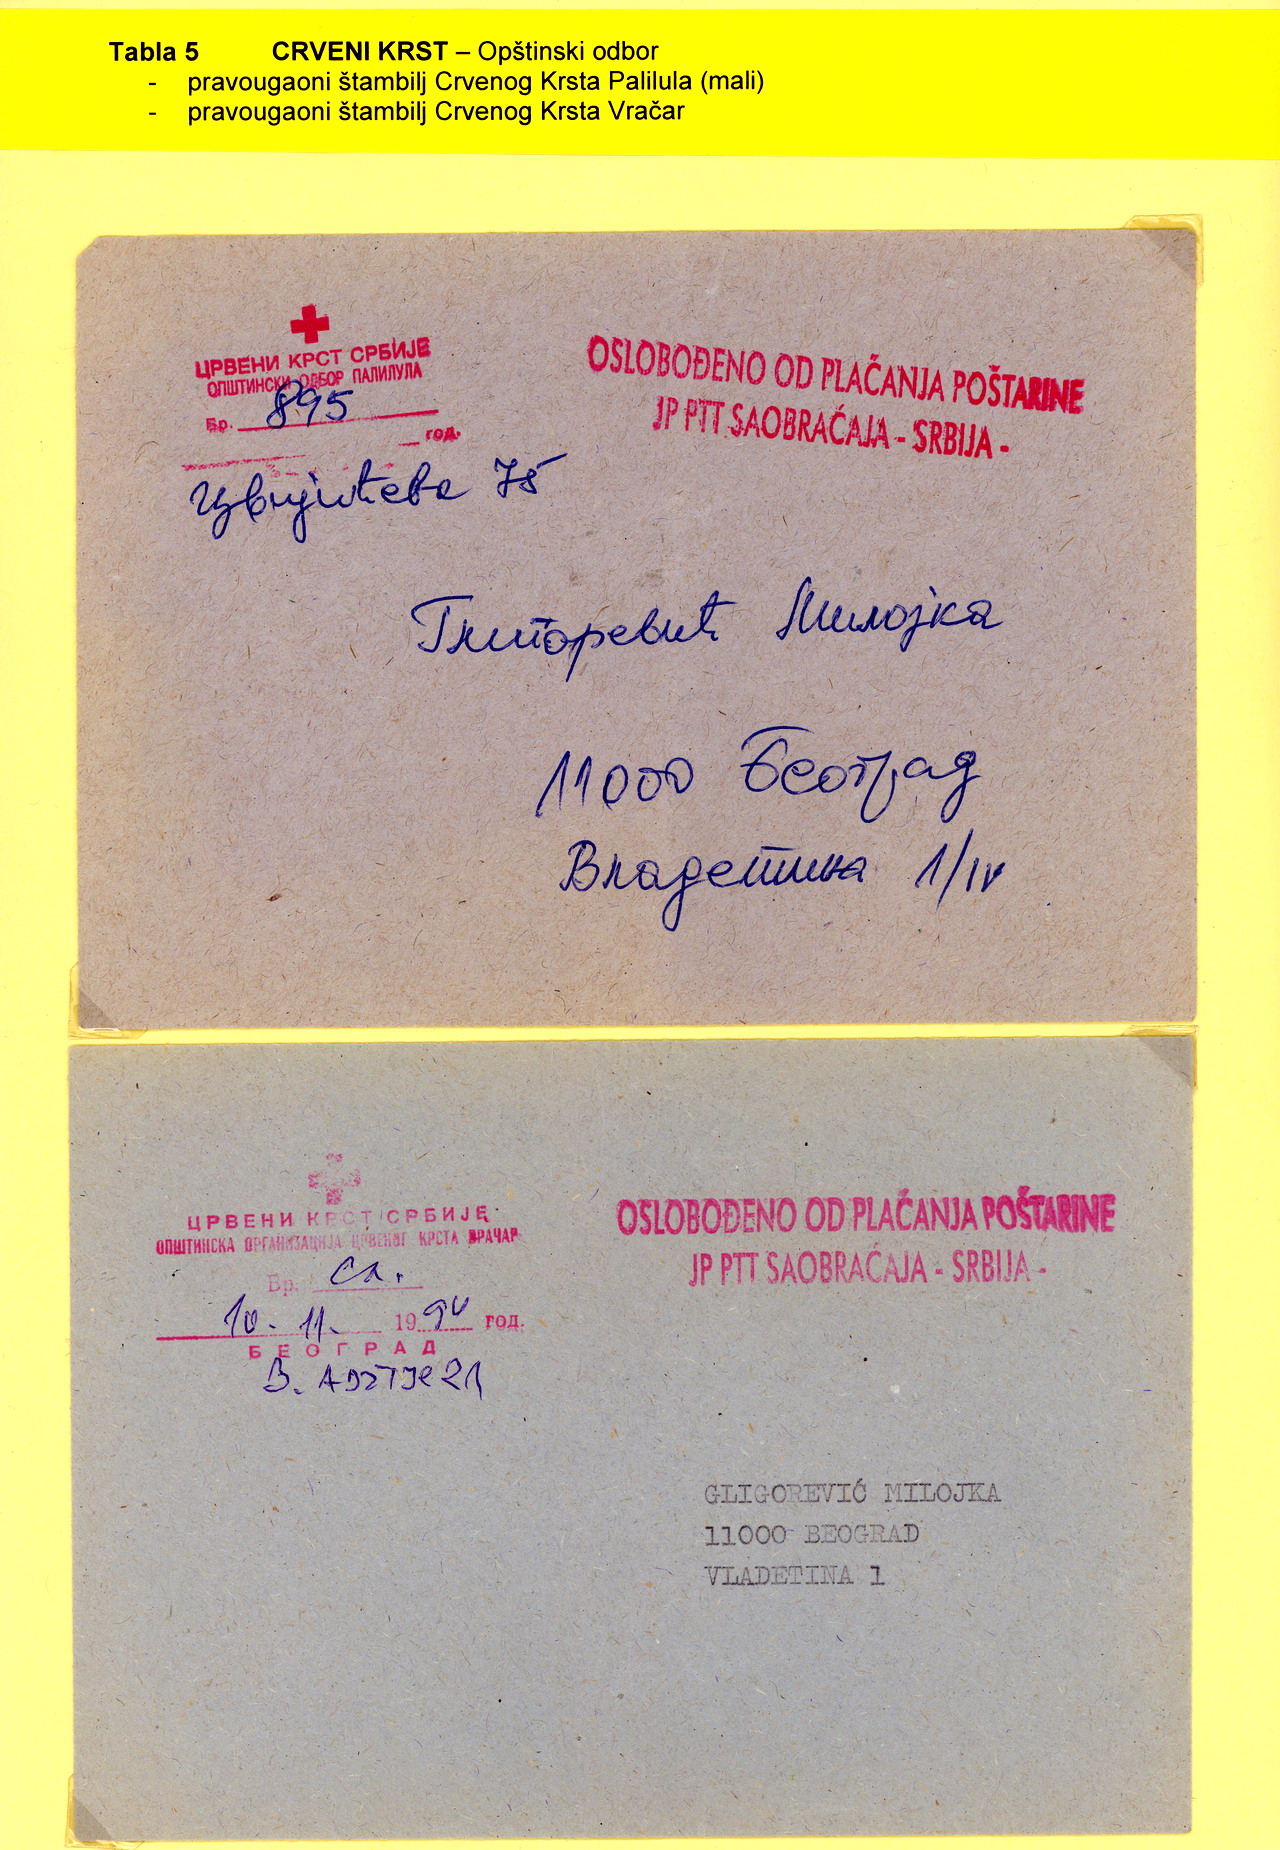 Tabla 5 CRVENI KRST – Opštinski odbor
- pravougaoni štambilj Crvenog Krsta Palilula (mali)
- pravougaoni štambilj Crvenog Krsta Vračar
ЦРВЕНИ КРСТ СРБИЈЕ
ОПШТИНСКИ ОДБОР ПАЛИЛУЛА
Бр. 895
год.
Цвијићева 75
OSLOBOĐENO OD PLAĆANJA POŠTARINE
JP PTT SAOBRAĆAJA - SRBIJA -
Глигоревић Милојка
11000 Београд
Владетина 1/IV
ЦРВЕНИ КРСТ СРБИЈЕ
ОПШТИНСКА ОРГАНИЗАЦИЈА ЦРВЕНОГ КРСТА ВРАЧАР
Бр. сл.
10. 11. 1994 год.
БЕОГРАД
B.
OSLOBOĐENO OD PLAĆANJA POŠTARINE
JP PTT SAOBRAĆAJA - SRBIJA -
GLIGOREVIĆ MILOJKA
11000 BEOGRAD
VLADETINA 1